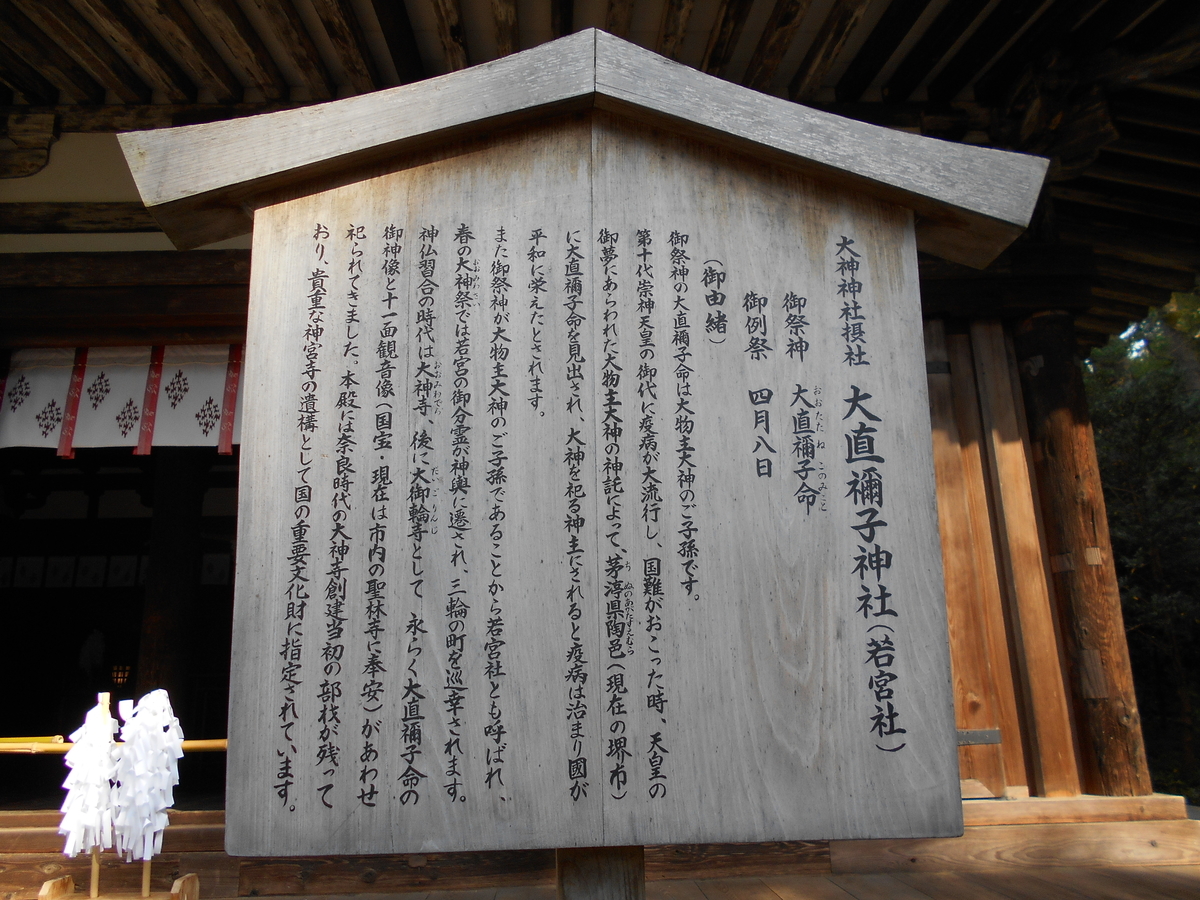 大神神社摂社 大直禰子神社(若宮社)
御祭神 大直禰子命
おおたた ね このみこと
御例祭 四月八日
(御由緒)
御祭神の大直禰子命は大物主大神のご子孫です。
第十代崇神天皇の御代に疫病が大流行し、国難がおこった時、天皇の
御夢にあらわれた大物主大神の神託によって、茅渟県陶邑(現在の堺市)
ち ぬのあがたすえむら
に大直禰子命を見出され、大神を祀る神主にされると疫病は治まり國が
平和に栄えたとされます。
また御祭神が大物主大神のご子孫であることから若宮社とも呼ばれ、
春の大神祭では若宮の御分霊が神輿に遷され、三輪の町を巡幸されます。
おおみわさい
神仏習合の時代は大神寺、後に大御輪寺として 永らく大直禰子命の
おおみわでら だいごりんじ
御神像と十一面観音像(国宝・現在は市内の聖林寺に奉安)があわせ
祀られてきました。本殿は奈良時代の大神寺創建当初の部材が残って
おり、貴重な神宮寺の遺構として国の重要文化財に指定されています。